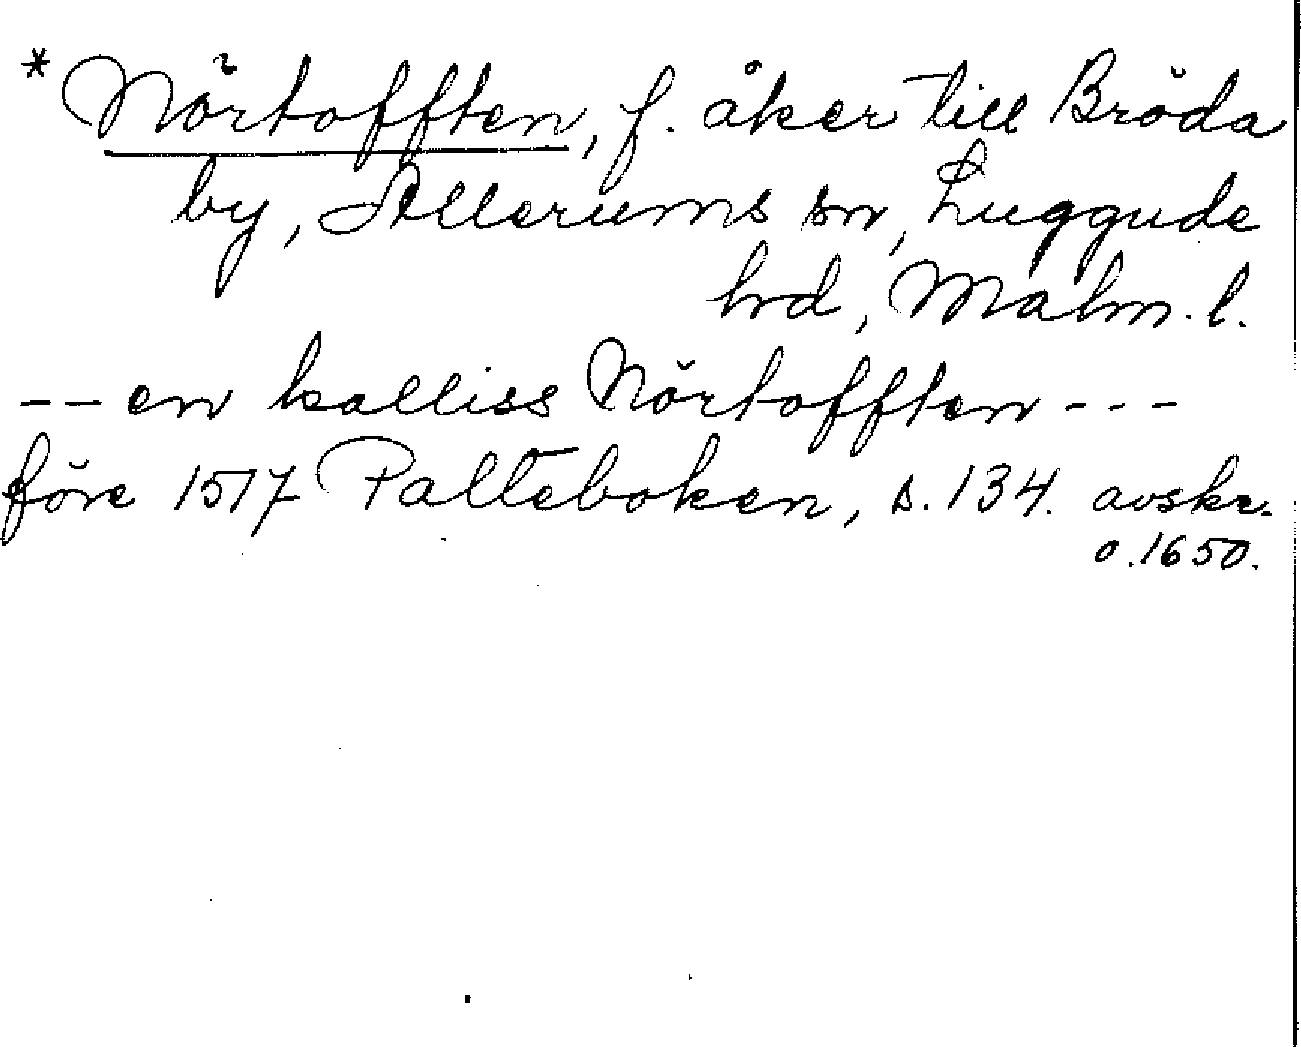 * Nörtofften, f. åker till Bröda
by, Allerums sn, Luggude
hrd, Malm. l.
-- en kalliss Nörtofften ---
före 1517 Palteboken, s. 134. avskr.
o. 1650.